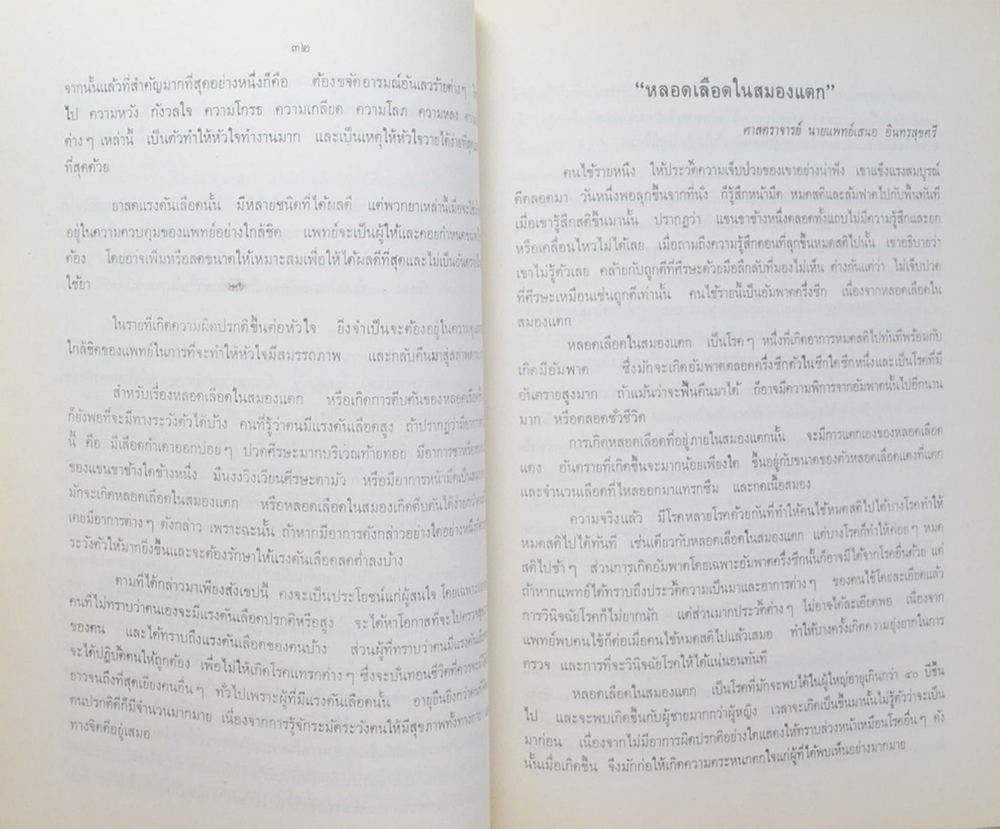 ๓๒
จากนั้นแล้วที่สำคัญมากที่สุดอย่างหนึ่งก็คือ ต้องขจัดอารมณ์อันเลวร้ายต่างๆ
ไป ความหวัง กังวลใจ ความโกรธ ความเกลียด ความโลภ ความหลง
ต่างๆ เหล่านี้ เป็นตัวทำให้หัวใจทำงานมาก และเป็นเหตุให้หัวใจวายได้ง่ายที่สุด
ที่สุดด้วย
ยาลดแรงดันเลือดนั้น มีหลายชนิดที่ได้ผลดี แต่พวกยาเหล่านี้เมื่อจะใช้
อยู่ในความควบคุมของแพทย์อย่างใกล้ชิด แพทย์จะเป็นผู้ให้และคอยกำหนด
ต้อง โดยอาจเพิ่มหรือลดขนาดให้เหมาะสมเพื่อให้ได้ผลดีที่สุดและไม่เป็นอันตราย
ใช้ยา
ในรายที่เกิดความผิดปรกติขึ้นต่อหัวใจ ยิ่งจำเป็นจะต้องอยู่ในความ
ใกล้ชิดของแพทย์ในการที่จะทำให้หัวใจมีสมรรถภาพ และกลับคืนมาสู่สภาพ
สำหรับเรื่องหลอดเลือดในสมองแตก หรือเกิดการตีบตันของหลอดเลือด
ก็ยังพอที่จะมีทางระวังตัวได้บ้าง คนที่รู้ว่าตนมีแรงดันเลือดสูง ถ้าปรากฏว่ามีอาการ
นี้ คือ มีเลือดกำเดาออกบ่อยๆ ปวดศีรษะมากบริเวณท้ายทอย มีอาการชา
ของแขนขาข้างใดข้างหนึ่ง มึนงงวิงเวียนศีรษะตามัว หรือมีอาการหน้ามืดเป็น
มักจะเกิดหลอดเลือดในสมองแตก หรือหลอดเลือดในสมองเกิดตีบตันได้ง่ายกว่า
เคยมีอาการต่างๆ ดังกล่าว เพราะฉะนั้น ถ้าหากมีอาการดังกล่าวอย่างใดอย่างหนึ่ง
ระวังตัวให้มากยิ่งขึ้นและจะต้องรักษาให้แรงดันเลือดลดต่ำลงบ้าง
ตามที่ได้กล่าวมาเพียงสังเขปนี้ คงจะเป็นประโยชน์แก่ผู้สนใจ โดยเฉพาะ
คนที่ไม่ทราบว่าตนเองจะมีแรงดันเลือดปรกติหรือสูง จะได้หาโอกาสที่จะไปตรวจ
ของตน และได้ทราบถึงแรงดันเลือดของตนบ้าง ส่วนผู้ที่ทราบว่าตนมีแรงดันเลือด
จะได้ปฏิบัติตนให้ถูกต้อง เพื่อไม่ให้เกิดโรคแทรกต่างๆ ซึ่งจะบั่นทอนชีวิตที่ควรจะ
ยาวจนถึงที่สุดเยี่ยงคนอื่นๆ ทั่วไปเพราะผู้ที่มีแรงดันเลือดนั้น อายุยืนยิ่งกว่าคน
คนปรกติดีก็มีจำนวนมากมาย เนื่องจากการรู้จักระมัดระวังตนให้มีสุขภาพทั้งทางกาย
ทางจิตดีอยู่เสมอ
“หลอดเลือดในสมองแตก”
ศาสตราจารย์ นายแพทย์เสนอ อินทรสุขศรี
คนไข้รายหนึ่ง ให้ประวัติความเจ็บป่วยของเขาอย่างน่าฟัง เขาแข็งแรงสมบูรณ์
ดีตลอดมา วันหนึ่งพอลุกขึ้นจากที่นั่ง ก็รู้สึกหน้ามืด หมดสติและล้มฟาดไปกับพื้นทันที
เมื่อเขารู้สึกสติขึ้นมานั้น ปรากฏว่า แขนขาข้างหนึ่งตลอดทั้งแถบไม่มีความรู้สึกและยก
หรือเคลื่อนไหวไม่ได้เลย เมื่อถามถึงความรู้สึกตอนที่ลุกขึ้นหมดสติไปนั้น เขาอธิบายว่า
เขาไม่รู้ตัวเลย คล้ายกับถูกตีที่ศีรษะด้วยมือลึกลับที่มองไม่เห็น ต่างกันแต่ว่า ไม่เจ็บปวด
ที่ศีรษะเหมือนเช่นถูกตีเท่านั้น คนไข้รายนี้เป็นอัมพาตครึ่งซีก เนื่องจากหลอดเลือดใน
สมองแตก
หลอดเลือดในสมองแตก เป็นโรคๆ หนึ่งที่เกิดอาการหมดสติไปทันทีพร้อมกับ
เกิดมีอัมพาต ซึ่งมักจะเกิดอัมพาตตลอดครึ่งซีกตัวในซีกใดซีกหนึ่งและเป็นโรคที่มี
อันตรายสูงมาก ถ้าแม้นว่าจะฟื้นคืนมาได้ ก็อาจมีความพิการจากอัมพาตนั้นไปอีกนาน
มาก หรือตลอดชั่วชีวิต
การเกิดหลอดเลือดที่อยู่ภายในสมองแตกนั้น จะมีการแตกเองของหลอดเลือด
แดง อันตรายที่เกิดขึ้นจะมากน้อยเพียงใด ขึ้นอยู่กับขนาดของตัวหลอดเลือดแดงที่แตก
และจำนวนเลือดที่ไหลออกมาแทรกซึม และกดเนื้อสมอง
ความจริงแล้ว มีโรคหลายโรคด้วยกันที่ทำให้คนไข้หมดสติไปได้บางโรคทำให้
หมดสติไปได้ทันที เช่นเดียวกับหลอดเลือดในสมองแตก แต่บางโรคก็ทำให้ค่อยๆ หมด
สติไปช้าๆ ส่วนการเกิดอัมพาตโดยเฉพาะอัมพาตครึ่งซีกนั้นก็อาจมีได้จากโรคอื่นด้วย แต่
ถ้าหากแพทย์ได้ทราบถึงประวัติความเป็นมาและอาการต่างๆ ของคนไข้โดยละเอียดแล้ว
การวินิจฉัยโรคก็ไม่ยากนัก แต่ส่วนมากประวัติต่างๆ ไม่อาจได้ละเอียดพอ เนื่องจาก
แพทย์พบคนไข้ก็ต่อเมื่อคนไข้หมดสติไปแล้วเสมอ ทำให้บางครั้งเกิดความยุ่งยากในการ
ตรวจ และการที่จะวินิจฉัยโรคให้ได้แน่นอนทันที
หลอดเลือดในสมองแตก เป็นโรคที่มักจะพบได้ในผู้ใหญ่อายุเกินกว่า ๔๐ ปีขึ้น
ไป และจะพบเกิดขึ้นกับผู้ชายมากกว่าผู้หญิง เวลาจะเกิดเป็นขึ้นมานั้นไม่รู้ตัวว่าจะเป็น
มาก่อน เนื่องจากไม่มีอาการผิดปรกติอย่างใดแสดงให้ทราบล่วงหน้าเหมือนโรคอื่นๆ ดัง
นั้นเมื่อเกิดขึ้น จึงมักก่อให้เกิดความตระหนกตกใจแก่ผู้ที่ได้พบเห็นอย่างมากมาย